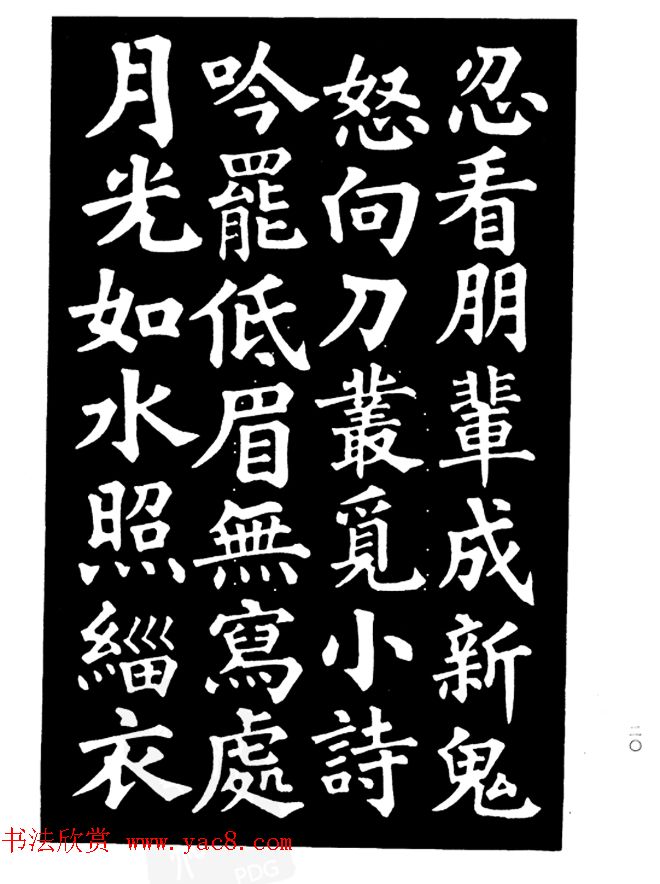 忍看朋輩成新鬼
怒向刀叢覓小詩
吟罷低眉無寫處
月光如水照緇衣
二〇
书法欣赏 www.yac8.com
PDG